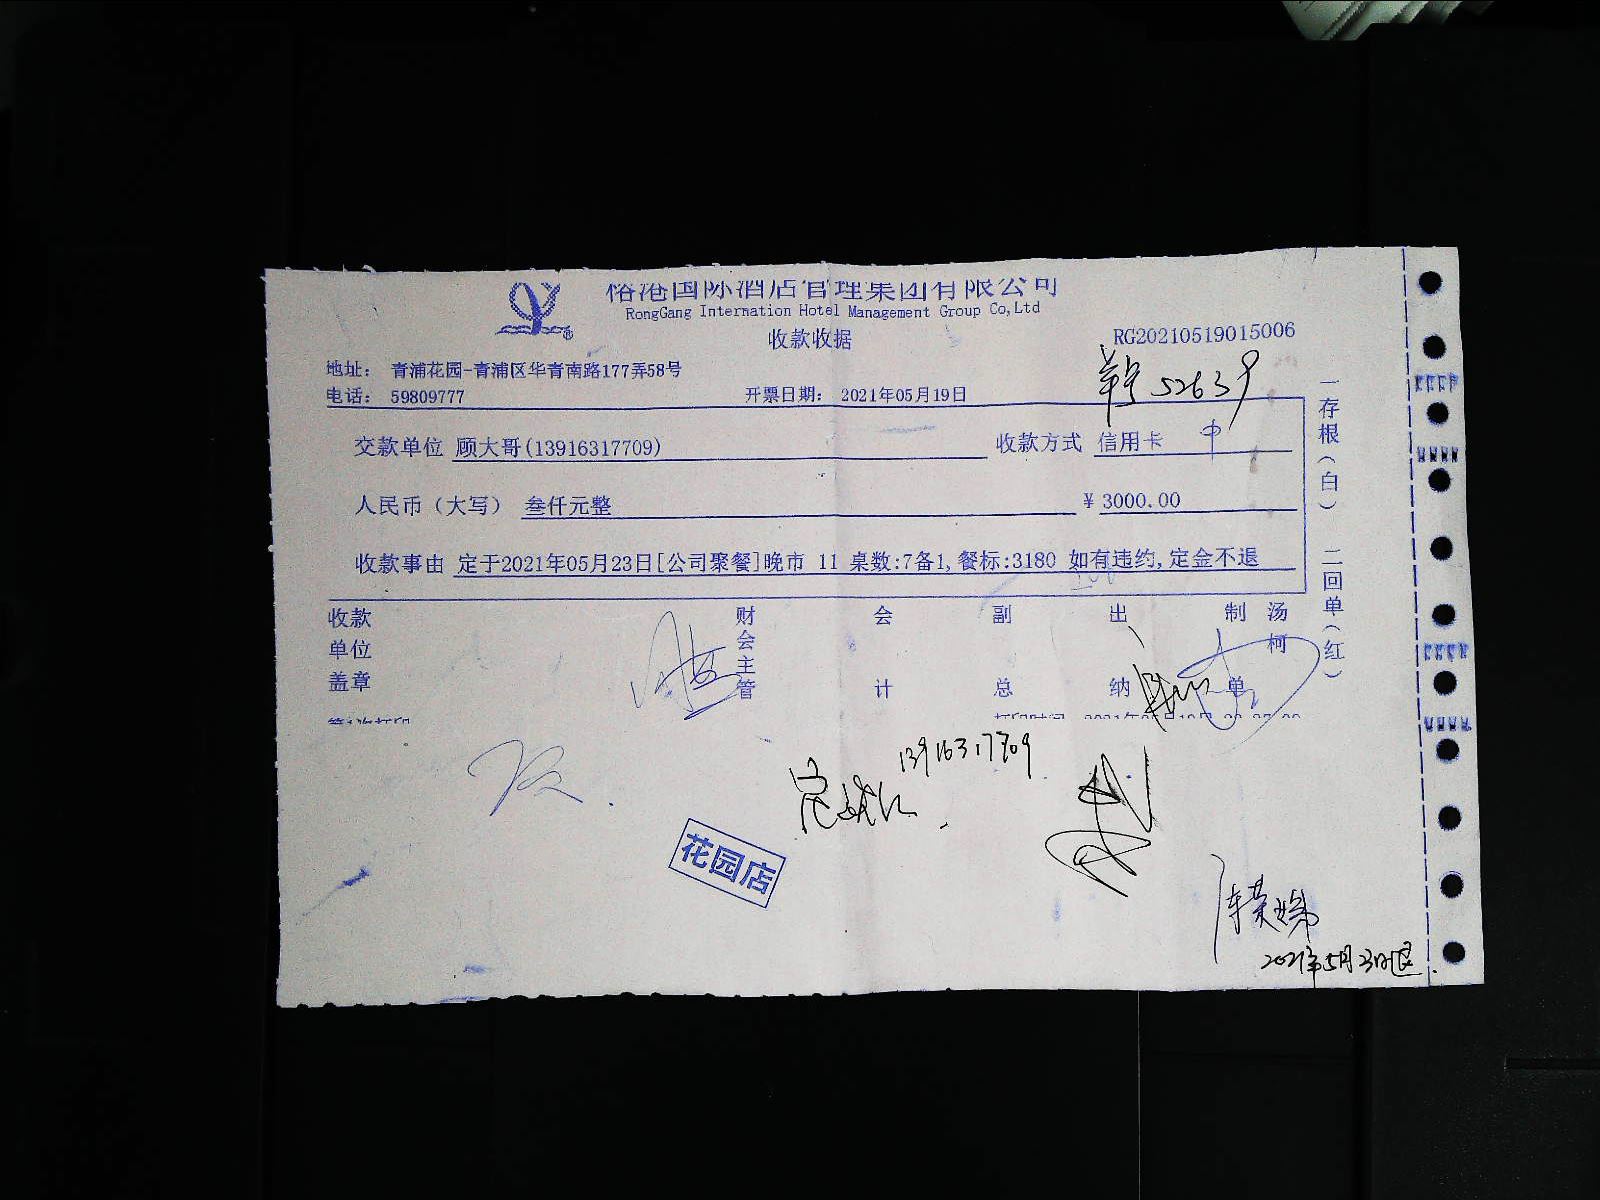 国际酒店管理集团有限公司
RongGang Internation Hotel Management Group Co,Ltd
收款收据
RG20210519015006
地址: 青浦花园-青浦区华青南路177弄58号
电话: 59809777 开票日期: 2021年05月19日
52639
交款单位 顾大哥(13916317709) 收款方式 信用卡 中
人民币(大写) 叁仟元整 ¥ 3000.00
收款事由 定于2021年05月23日[公司聚餐]晚市 11 桌数:7备1,餐标:3180 如有违约,定金不退
一存根(白) 二回单(红)
收款单位盖章 财会主管 会计 副总 出纳 制单 汤柯
13916317709
花园店
2021年5月23日退